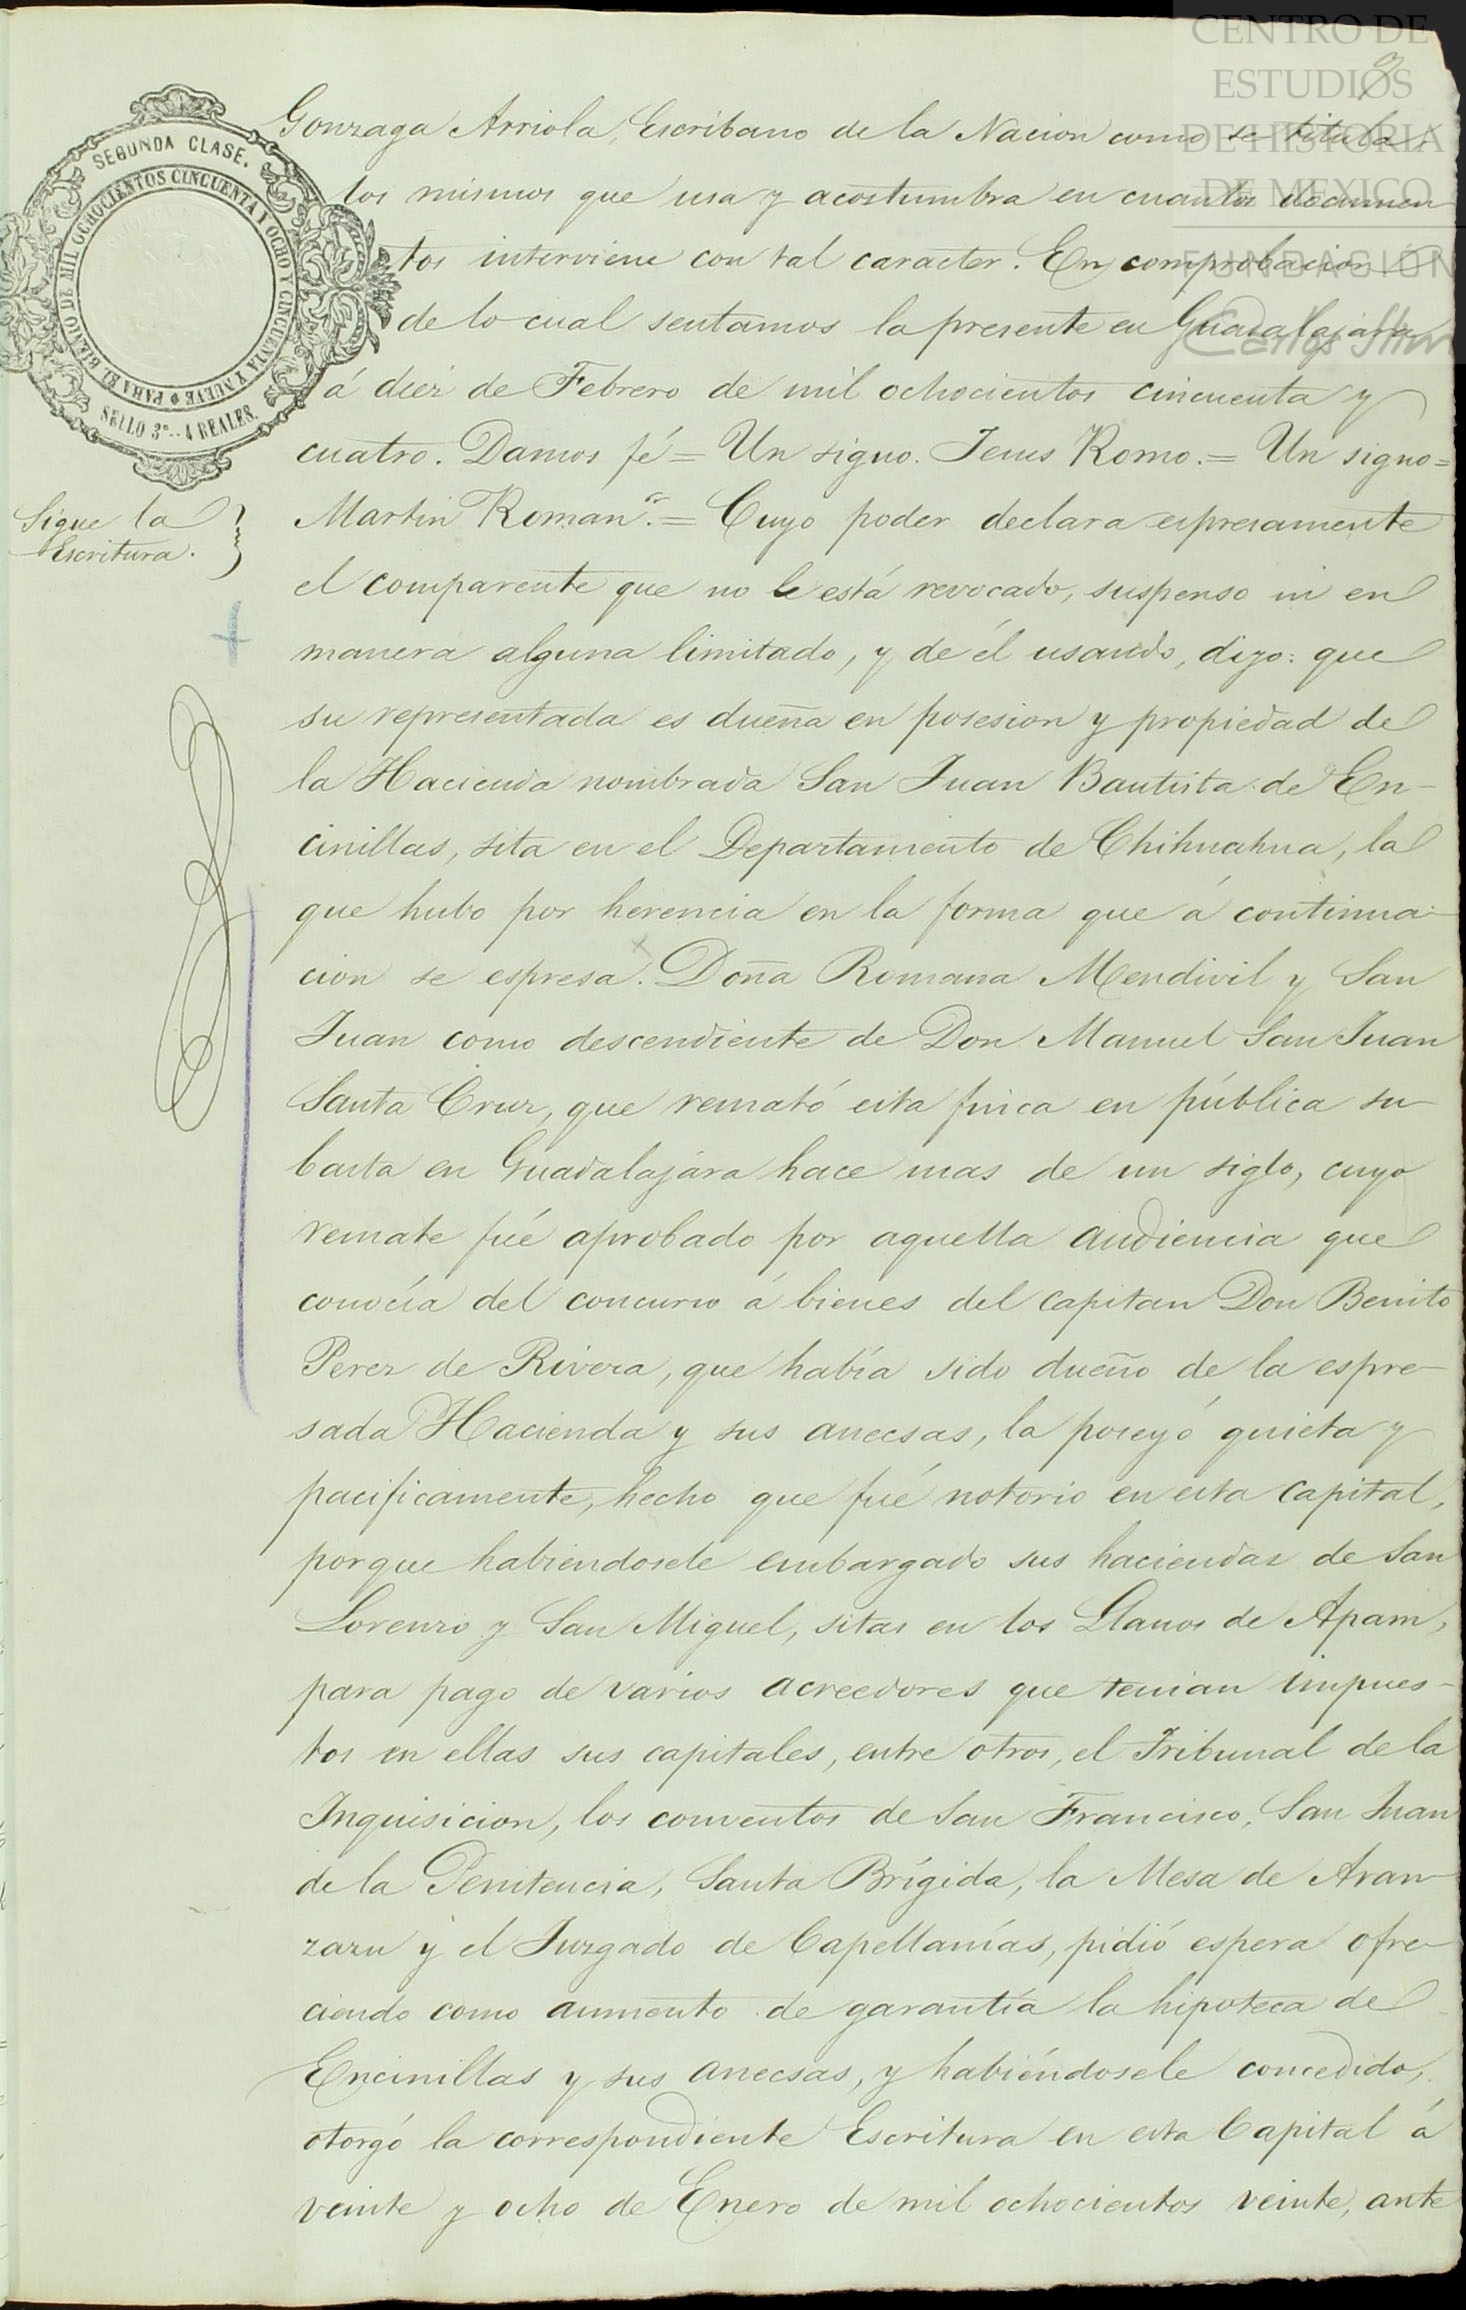 CENTRO DE
ESTUDIOS
DE HISTORIA
DE MEXICO
FUNDACIÓN
Carlos Slim
SEGUNDA CLASE.
PARA EL BIENIO DE MIL OCHOCIENTOS CINCUENTA Y OCHO Y CINCUENTA Y NUEVE
SELLO 3º.. 4 REALES.
Gonzaga Arriola, Escribano de la Nacion como se titula,
los mismos que usa y acostumbra en cuantos documen
tos interviene con tal caracter. En comprobacion
de lo cual sentamos la presente en Guadalajara
á diez de Febrero de mil ochocientos cincuenta y
cuatro. Damos fé = Un signo. Jesus Romo. = Un signo =
Martin Roman. = Cuyo poder declara espresamente
Sigue la
Escritura.
el comparente que no le está revocado, suspenso ni en
manera alguna limitado, y de él usando, dijo: que
su representada es dueña en posesion y propiedad de
la Hacienda nombrada San Juan Bautista de En-
cinillas, sita en el Departamento de Chihuahua, la
que hubo por herencia en la forma que á continua-
cion se espresa. Doña Romana Mendivil y San
Juan como descendiente de Don Manuel San Juan
Santa Cruz, que remató esta finca en pública su-
basta en Guadalajára hace mas de un siglo, cuyo
remate fué aprobado por aquella audiencia que
conocía del concurso á bienes del capitan Don Benito
Perez de Rivera, que había sido dueño de la espre-
sada Hacienda y sus anecsas, la poseyó quieta y
pacificamente, hecho que fué notorio en esta capital,
porque habiendosele embargado sus haciendas de San
Lorenzo y San Miguel, sitas en los Llanos de Apam,
para pago de varios acreedores que tenian impues-
tos en ellas sus capitales, entre otros, el Tribunal de la
Inquisicion, los conventos de San Francisco, San Juan
de la Penitencia, Santa Brígida, la Mesa de Aran-
zazu y el Juzgado de Capellanías, pidió espera ofre-
ciendo como aumento de garantía la hipoteca de
Encinillas y sus anecsas, y habiéndosele concedido,
otorgó la correspondiente Escritura en esta Capital á
veinte y ocho de Enero de mil ochocientos veinte, ante